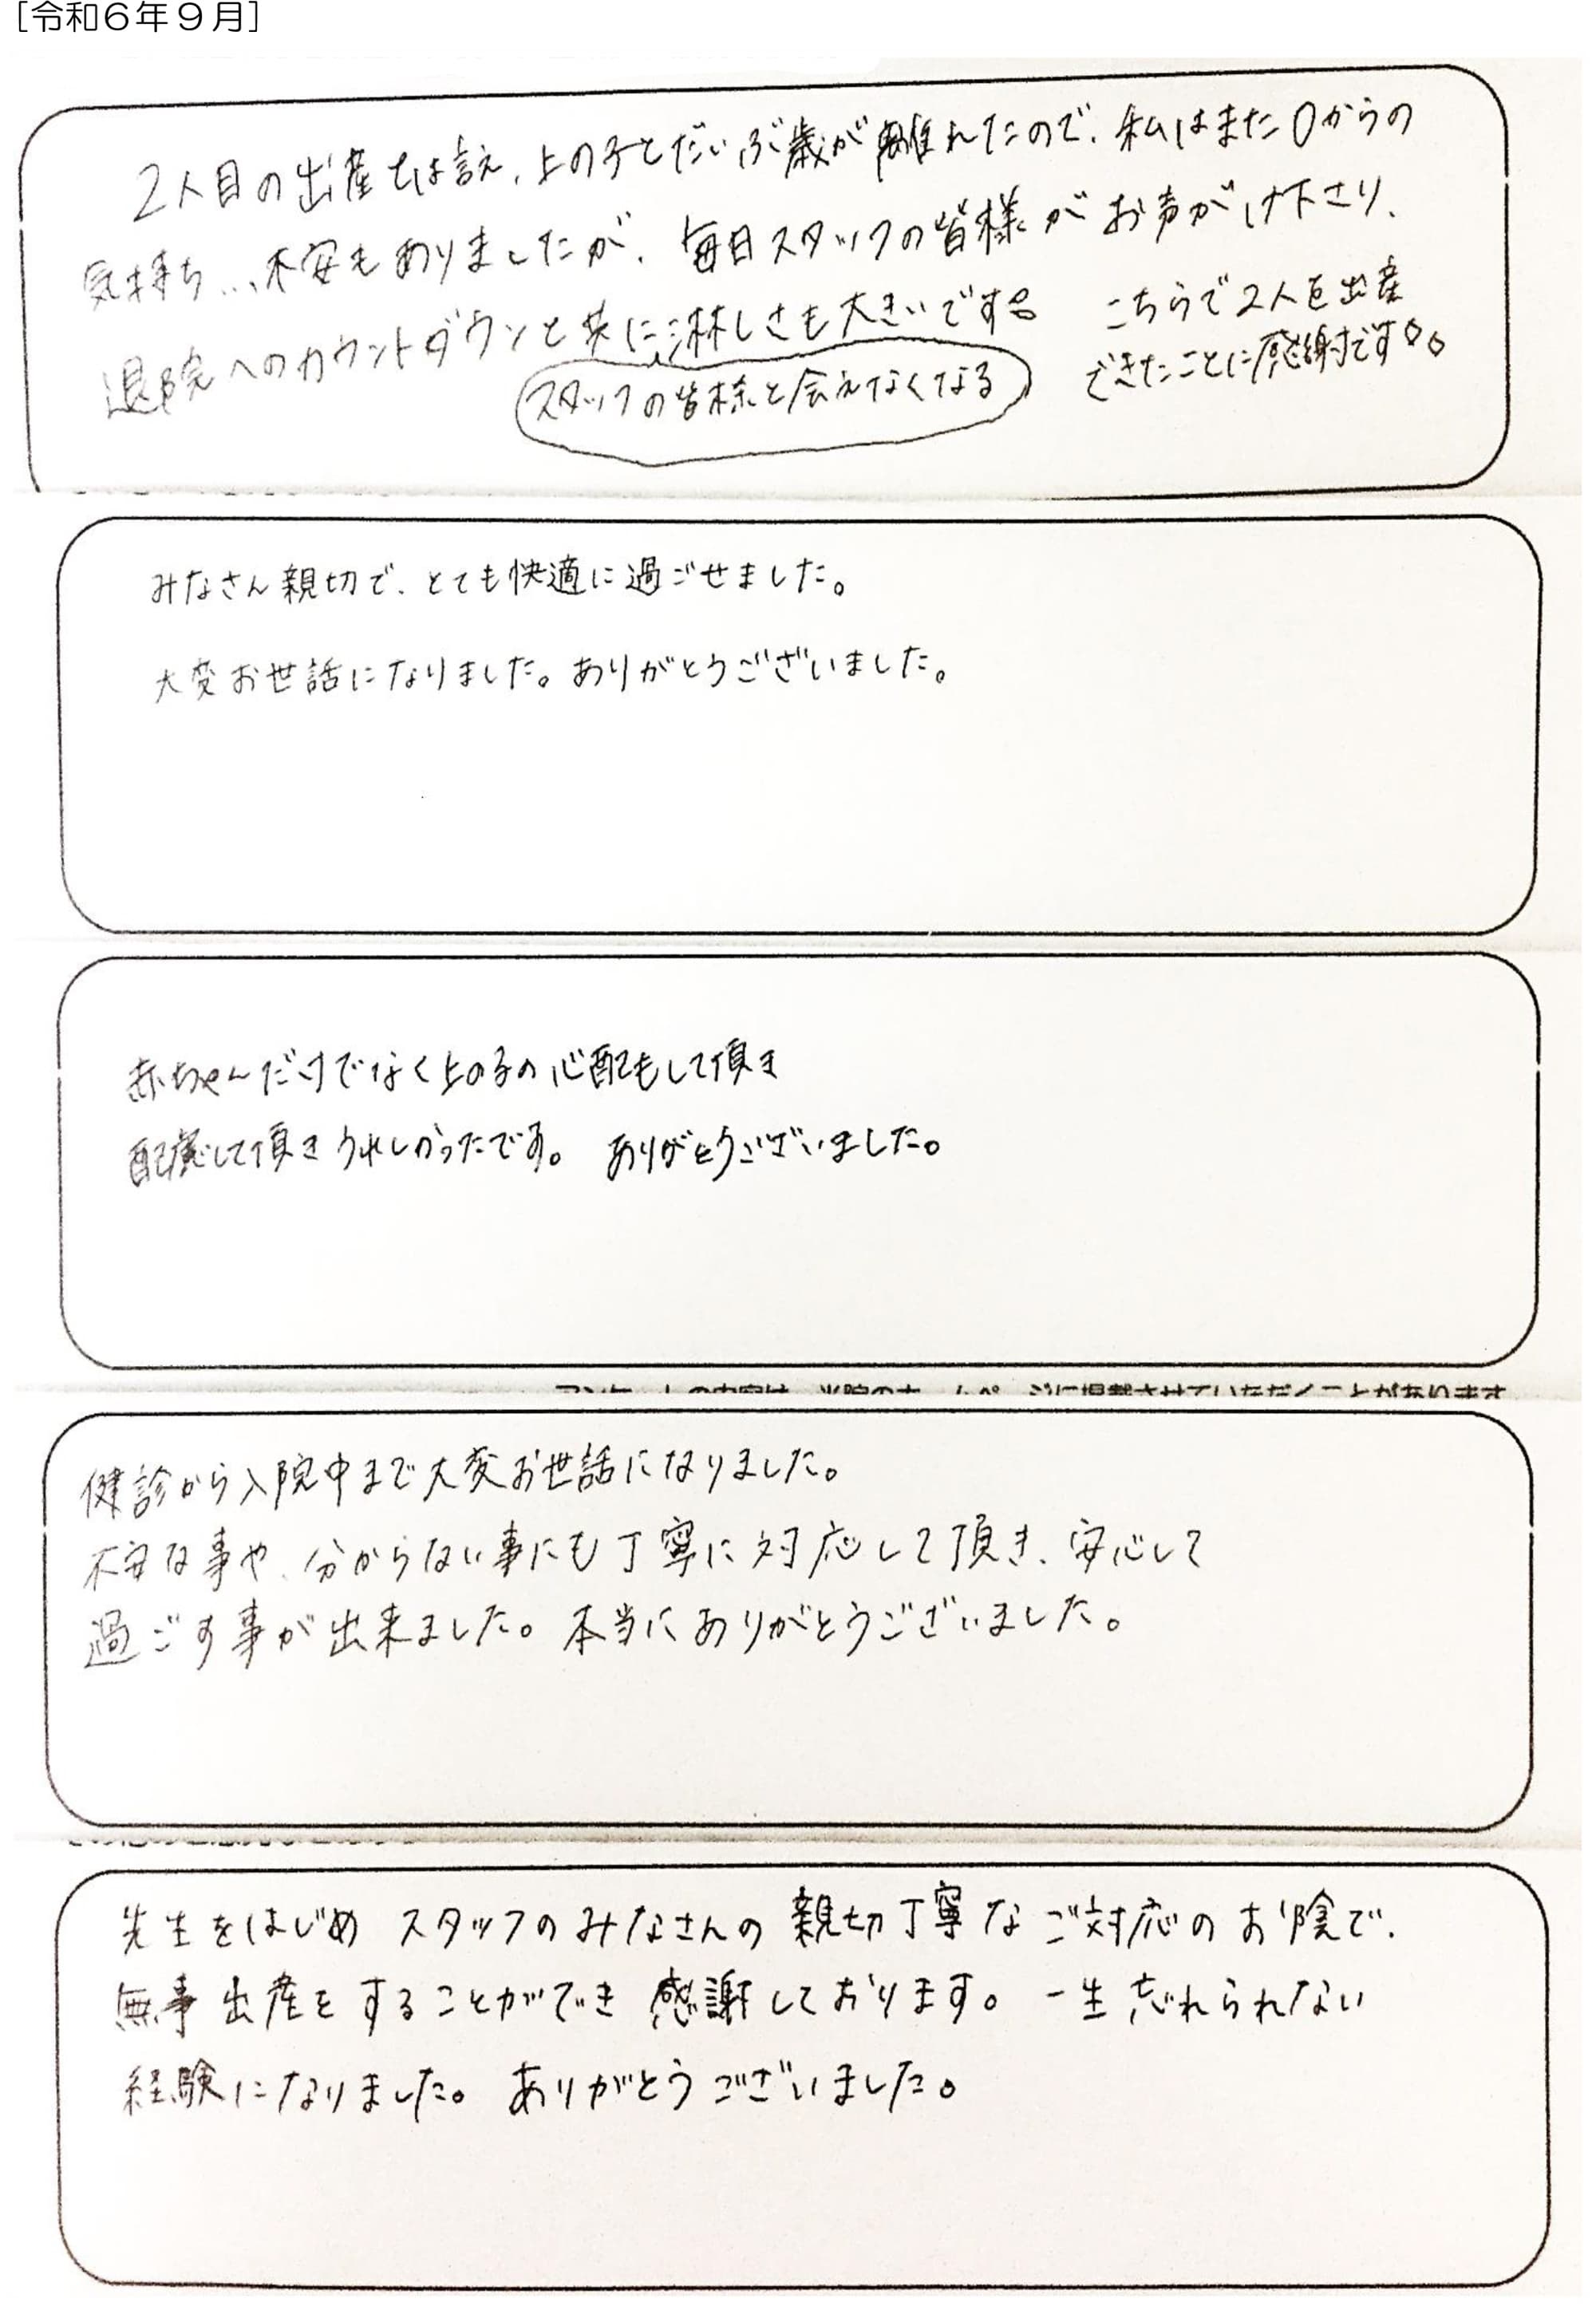 [令和6年9月]
2人目の出産とは言え、上の子とだいぶ歳が離れたので、私はまた0からの
気持ち...、不安もありましたが、毎日スタッフの皆様がお声がけ下さり、
退院へのカウントダウンと共に淋しさも大きいです。
スタッフの皆様と会えなくなる
こちらで2人を出産
できたことに感謝です。
みなさん親切で、とても快適に過ごせました。
大変お世話になりました。ありがとうございました。
赤ちゃんだけでなく上の子の心配もして頂き
配慮して頂きうれしかったです。 ありがとうございました。
アンケートの内容は、当院のホームページに掲載させていただくことがあります
健診から入院中まで大変お世話になりました。
不安な事や、分からない事にも丁寧に対応して頂き、安心して
過ごす事が出来ました。本当にありがとうございました。
先生をはじめ スタッフのみなさんの 親切丁寧な ご対応の お陰で、
無事 出産をすることができ 感謝しております。一生忘れられない
経験になりました。ありがとうございました。